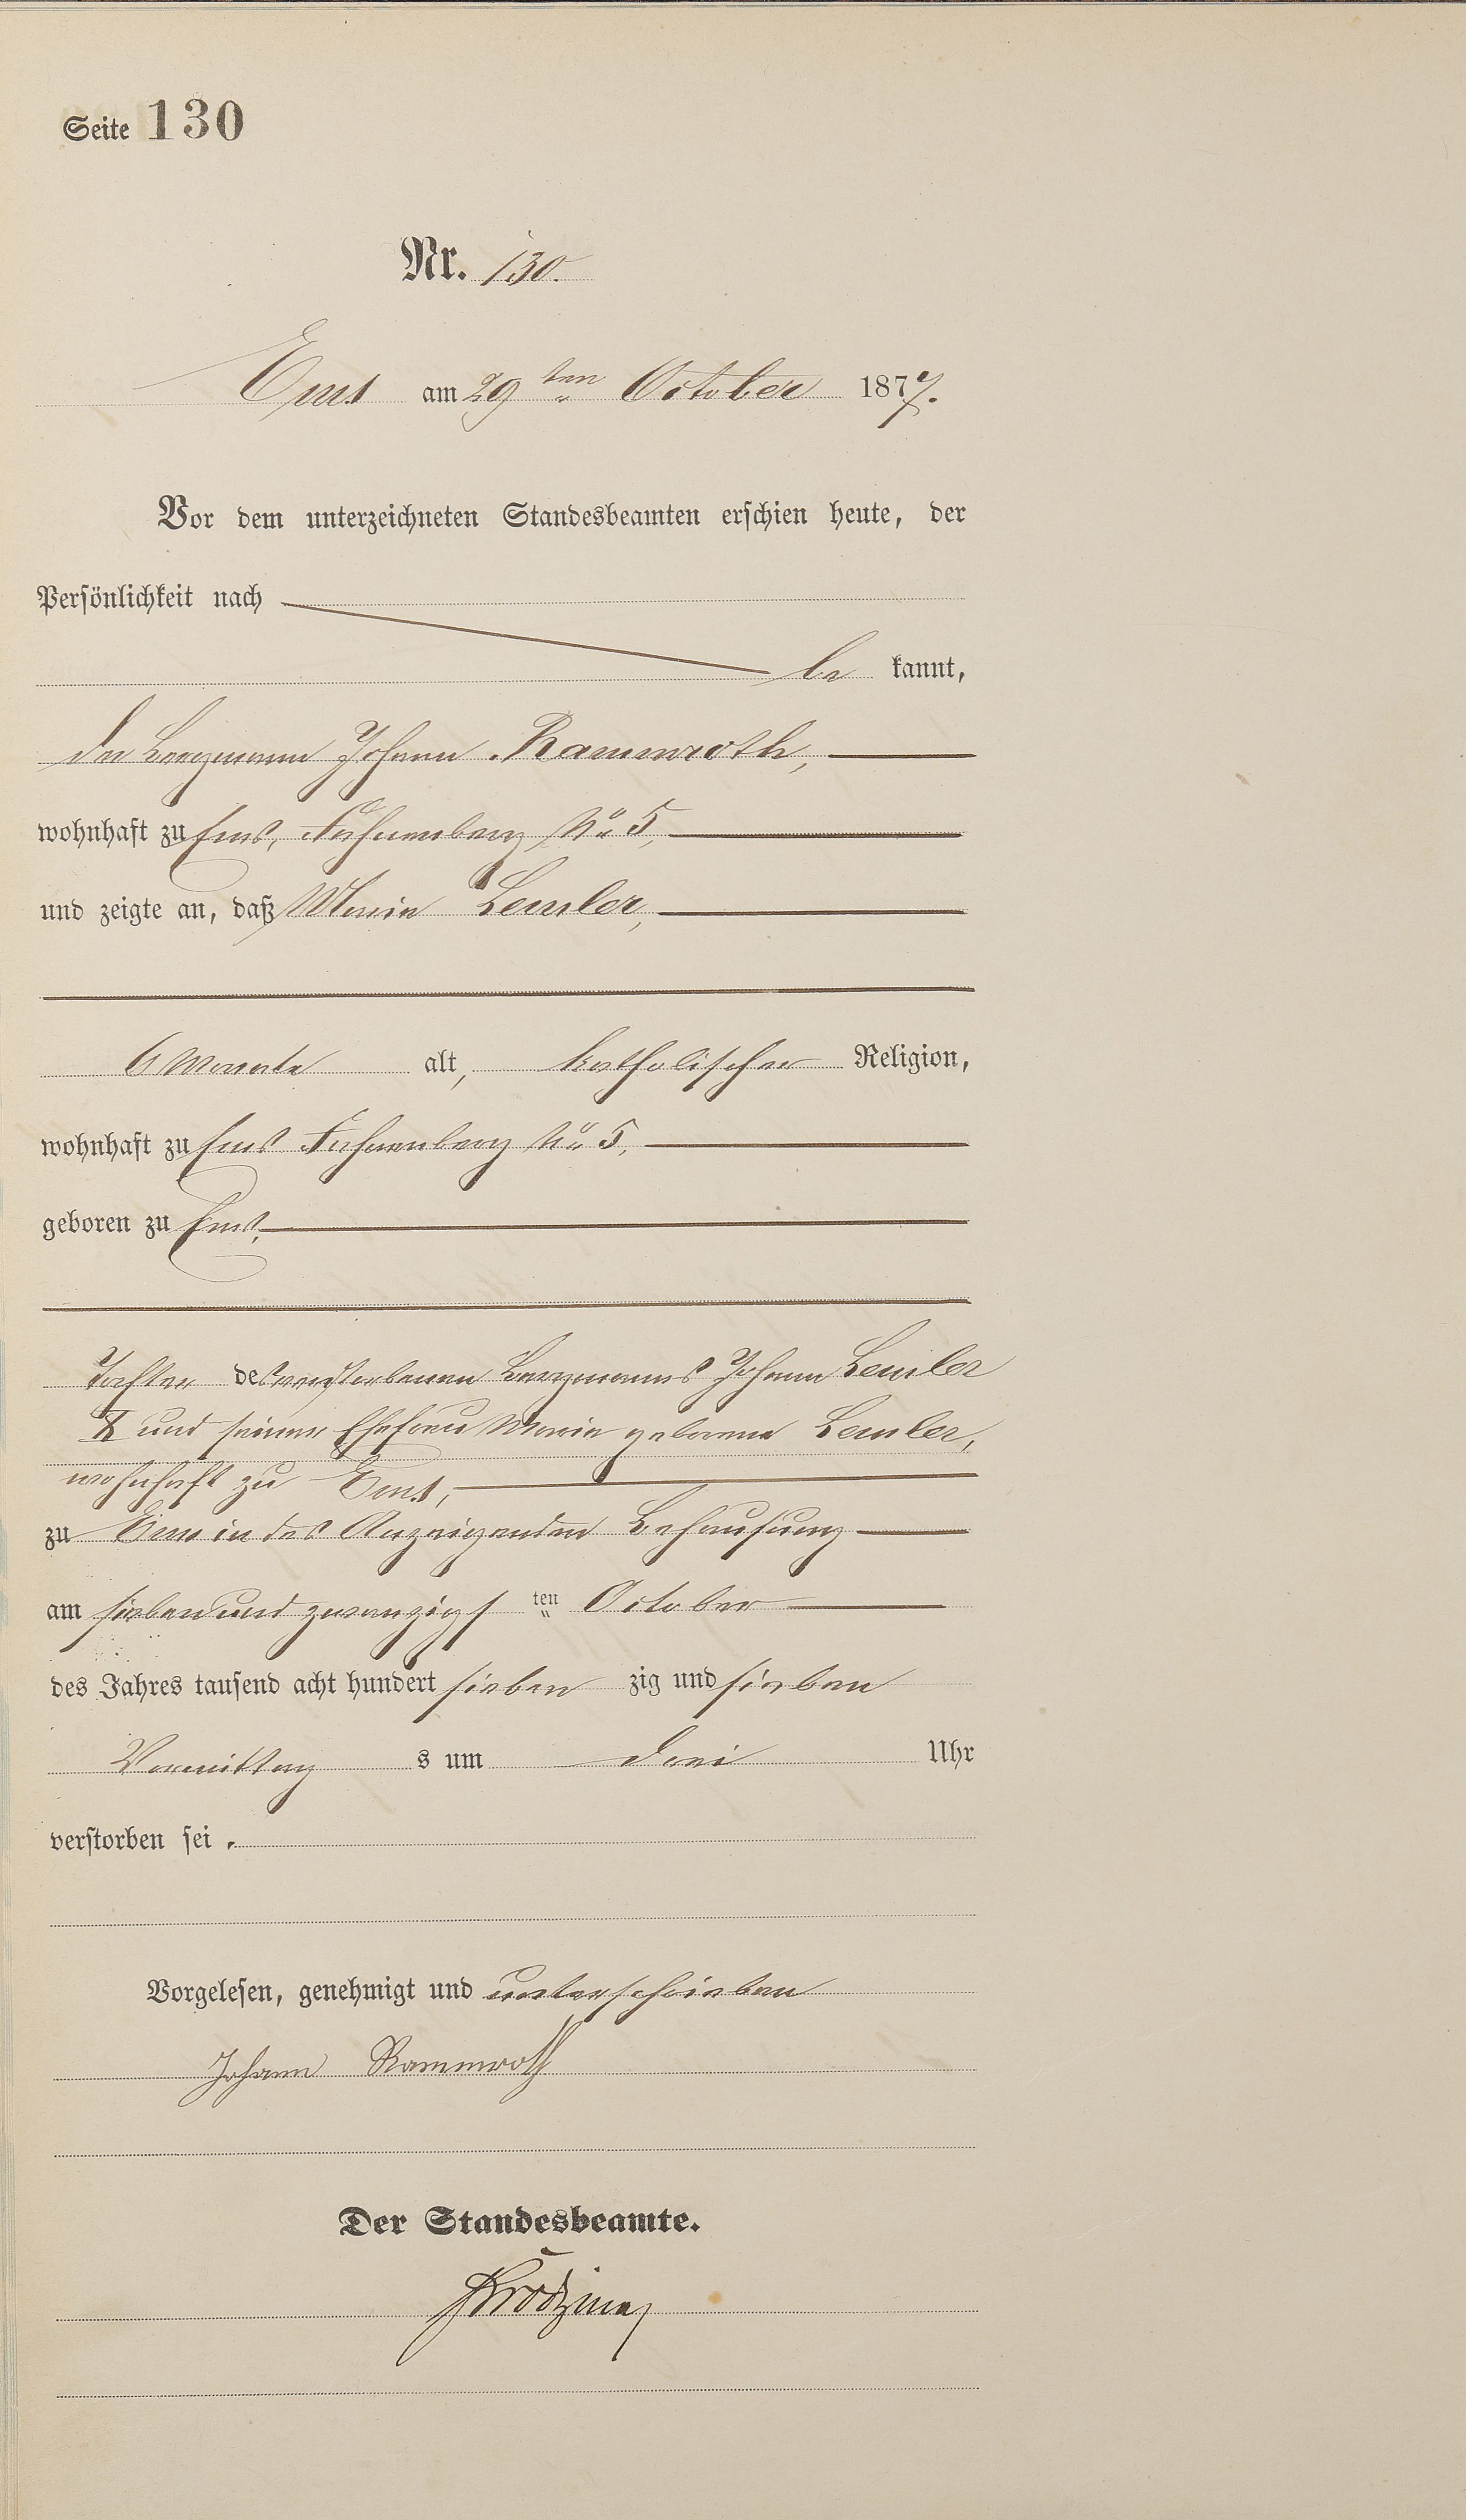 Seite 130
Nr. 130.
Ems am 29 ten October 1877.
Vor dem unterzeichneten Standesbeamten erschien heute, der
Persönlichkeit nach
be kannt,
der Bergmann Johann Rammroth,
wohnhaft zu Ems, No 5,
und zeigte an, daß Maria Lemler,
6 Monate alt, katholischer Religion,
wohnhaft zu Ems No 5,
geboren zu Ems,
Tochter des verstorbenen Bergmanns Johann Lemler
und seiner Ehefrau Maria geborene Lemler,
wohnhaft zu Ems,
zu Ems in des Anzeigenden Behausung
am siebenundzwanzigs ten October
des Jahres tausend acht hundert sieben zig und sieben
Vormittag s um drei Uhr
verstorben sei.
Vorgelesen, genehmigt und unterschrieben
Johann Rammroth
Der Standesbeamte.